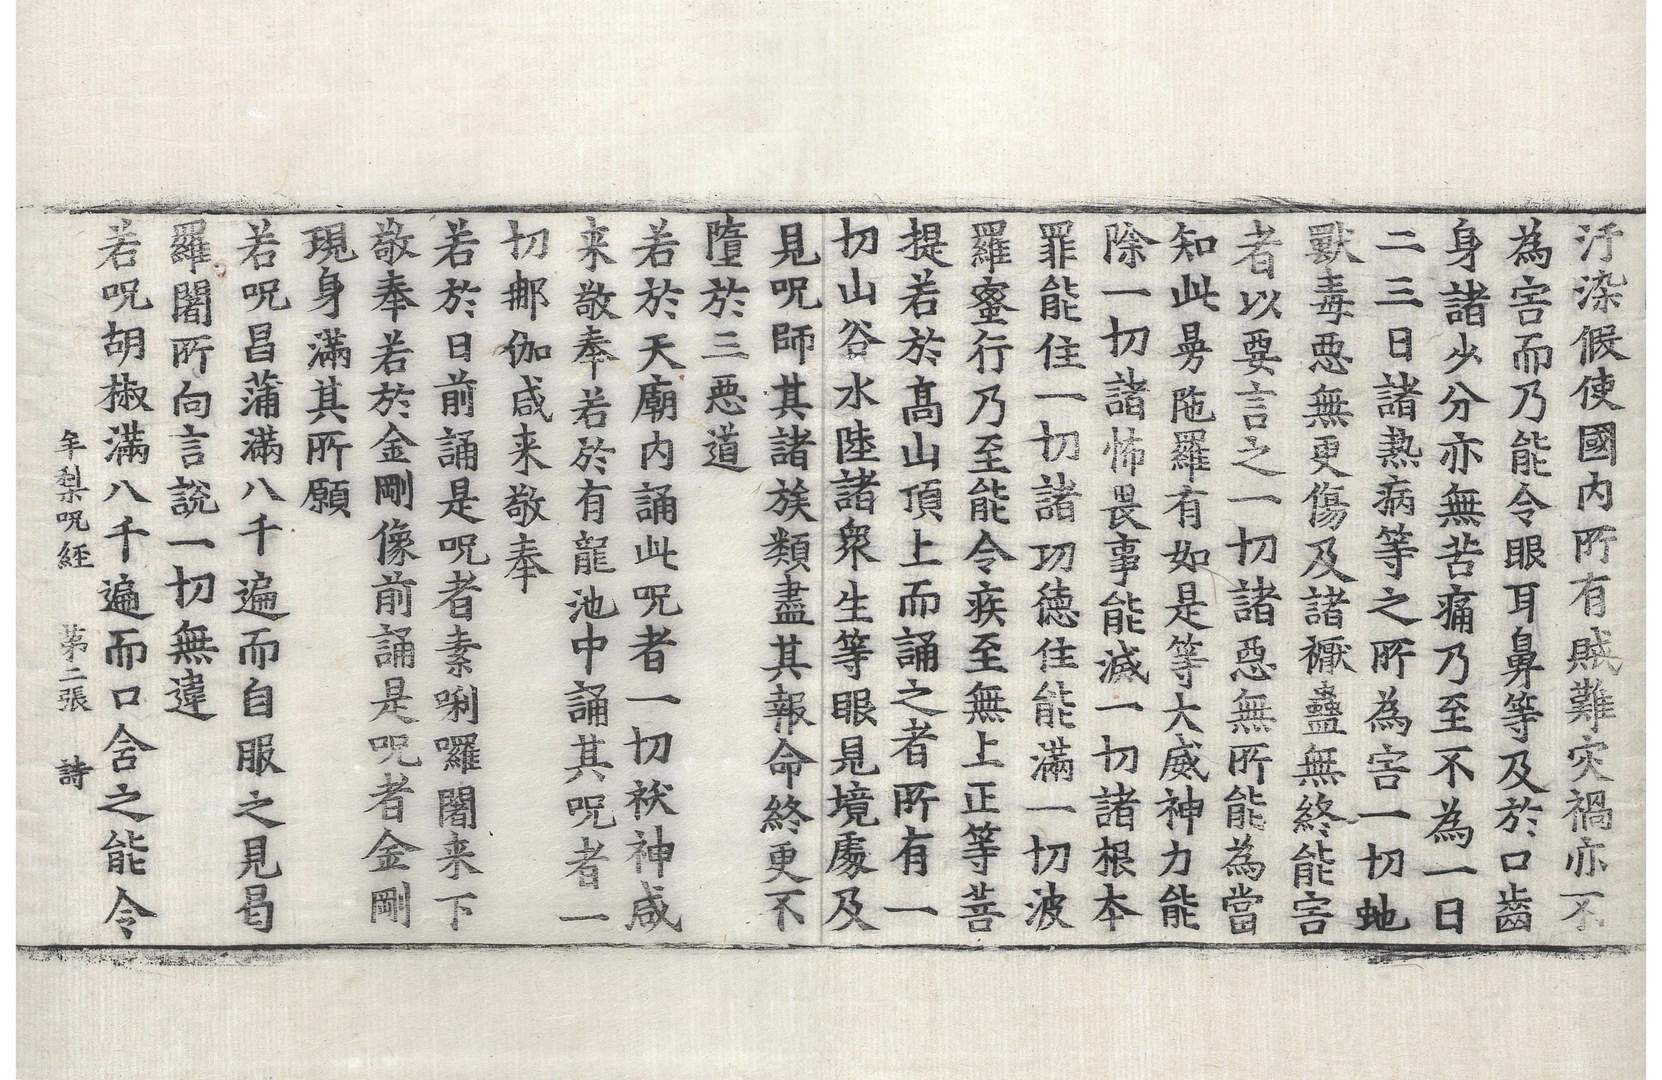 汙染假使國内所有賊難灾禍亦不
為害而乃能令眼耳鼻等及於口齒
身諸少分亦無苦痛乃至不為一日
二三日諸熱病等之所為害一切虵
獸毒惡無更傷及諸橛蠱無終能害
者以要言之一切諸惡無所能為當
知此㝵陁羅有如是等大威神力能
除一切諸怖畏事能滅一切諸根本
罪能住一切諸功德住能滿一切波
羅蜜行乃至能令疾至無上正等菩
提若於髙山頂上而誦之者所有一
切山谷水陸諸衆生等眼見境處及
見呪師其諸族類盡其報命終更不
墮於三惡道
若於天廟内誦此呪者一切袄神咸
来敬奉若於有龍池中誦其呪者一
切那伽咸来敬奉
若於日前誦是呪者素唎囉闍来下
敬奉若於金剛像前誦是呪者金剛
現身滿其所願
若呪昌蒲滿八千遍而自服之見曷
羅闍所向言說一切無違
若呪胡椒滿八千遍而口含之能令
牟梨呪經 苐二張 詩